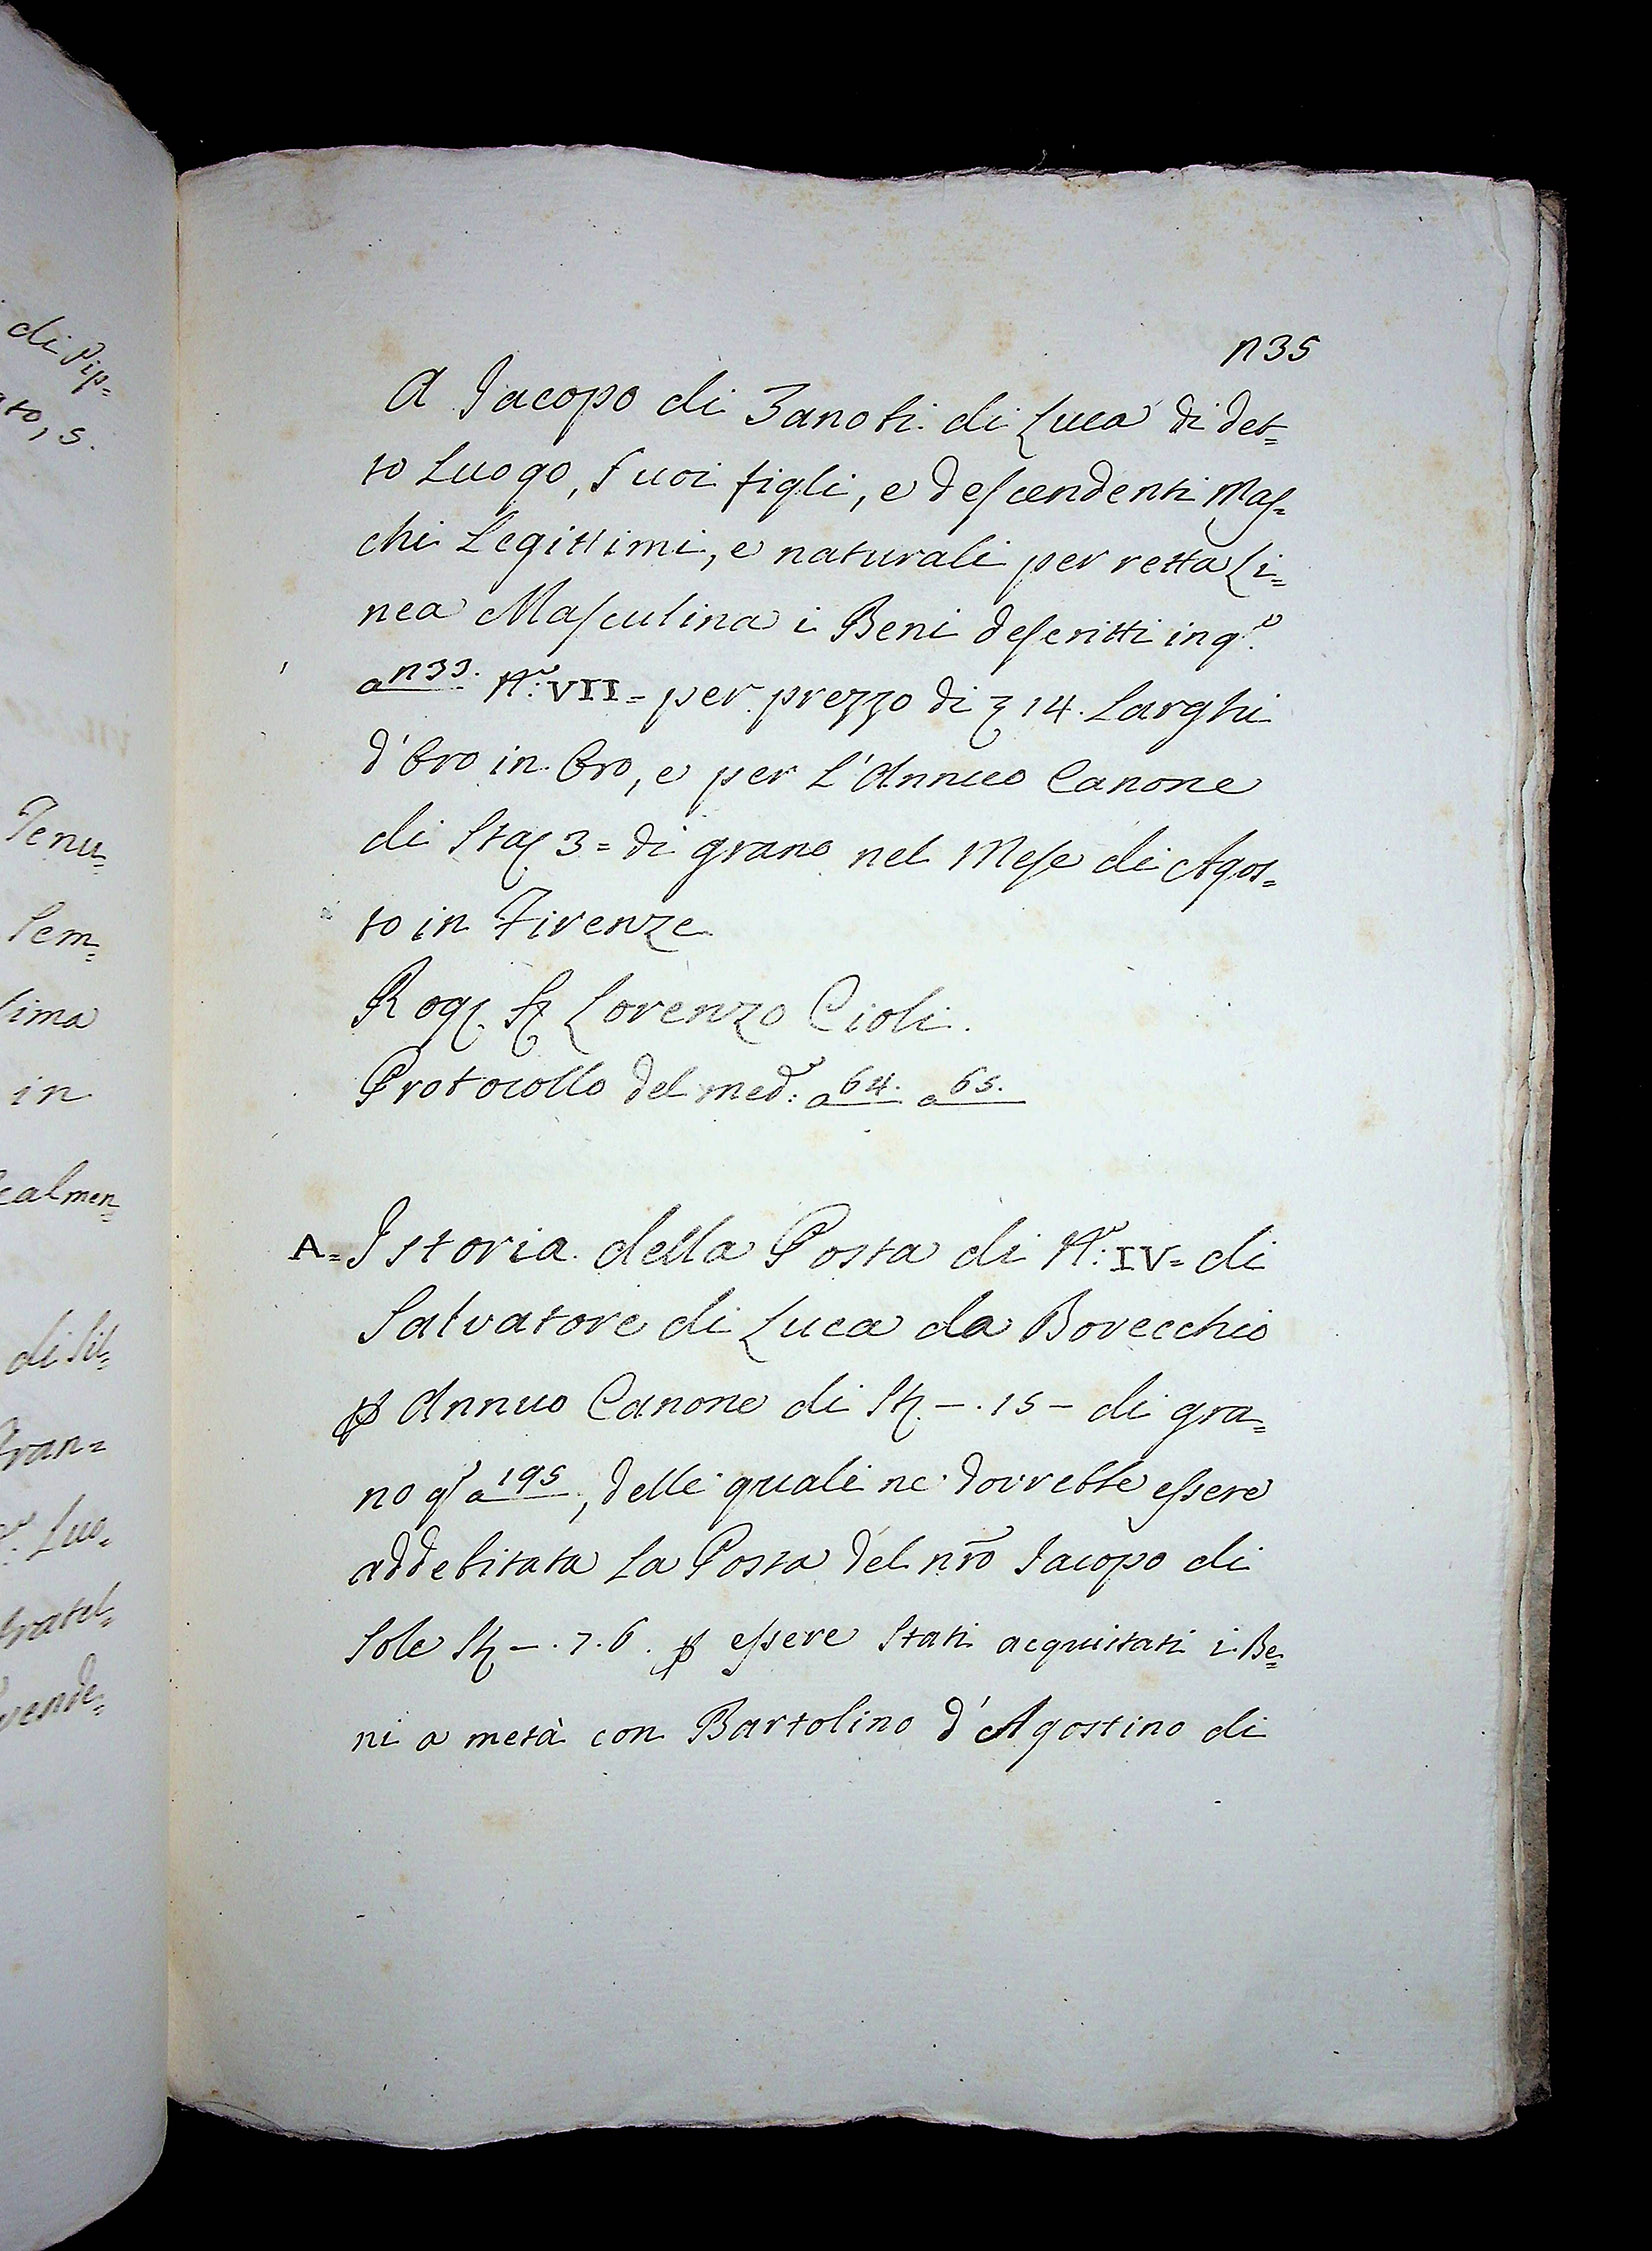 n35
A Jacopo di Zanobi di Luca di det=
to Luogo, suoi figli, e descendenti Mas=
chi Legittimi, e naturali per retta Li=
nea Masculina i Beni descritti in q.o
a n33. N.o: VII= per prezzo di 14. Larghi
d'Oro in Oro, e per L'Annuo Canone
di Sta 3= di grano nel Mese di Agos=
to in Firenze
Rog. Lorenzo Cioli.
Protocollo del med.o: a 64. a 65.
A= Istoria della Posta di N.o: IV= di
Salvatore di Luca da Bovecchio
p Annuo Canone di St. —. 15 — di gra=
no q.o a 195, delle quali ne dovrebbe essere
addebitata La Posta del nro Jacopo di
Sole St —. 7. 6. p essere Stati acquistati i Be=
ni a metà con Bartolino d'Agostino di
di Pip=
ato, s.
Tenu=
Sem=
sima
in
ealmen=
di Sil=
Fran=
Luo=
fratel=
vende=